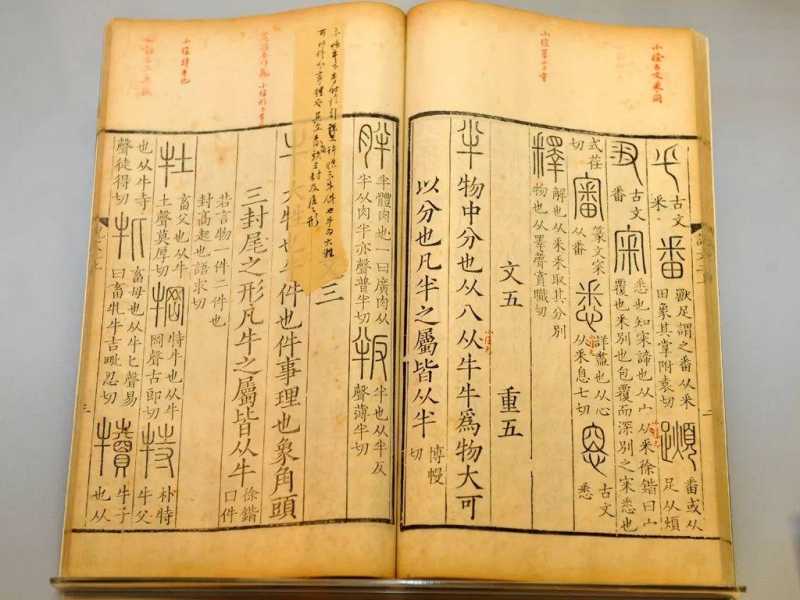 古文釆 番 獸足謂之番从釆田象其掌附袁切 番或从足从煩
古文番 宷 悉也知宷諦也从宀从釆徐鍇曰宀覆也釆別也包覆而深別之宷悉也
式荏切 審 篆文宷从番 悉 詳盡也从心从釆息七切 古文悉
釋 解也从釆釆取其分別物也从睪聲賞職切
文五 重五
半 物中分也从八从牛牛爲物大可
以分也凡半之屬皆从半 博幔切
胖 半體肉也一曰廣肉从半从肉半亦聲普半切 叛 半也从半反聲薄半切
文三
牛 大牲也牛件也件事理也象角頭
三封尾之形凡牛之屬皆从牛 徐鍇曰件
若言物一件二件也封高起也語求切
牡 畜父也从牛土聲莫厚切 犅 特牛也从牛岡聲古郎切 特 朴特牛父
也从牛寺聲徒得切 牝 畜母也从牛匕聲易曰畜牝牛吉毗忍切 犢 牛子也从
三